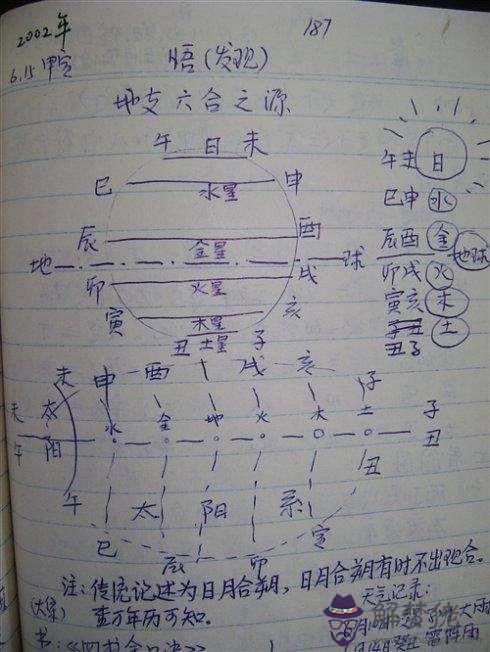 2002年
187
6.15 甲寅
悟(发现)
地支六合之源
午 日 未
巳 申
水星
辰 酉
金星
地 球
卯 戌
火星
寅 亥
木星
丑 土星 子
午未 日
巳申 水
辰酉 金
地球
卯戌 火
寅亥 木
子丑
丑子 土
未 申 酉 戌 亥 子
未 太 水 金 地 火 木 土 子
午 阳 丑
午 太 阳 系 丑
巳 辰 卯 寅
注:传统记述为日月合朔,日月合朔有时不出现合。
查万年历可知。
天气记录:
大雨
癸丑 雷阵雨
书:《四书金口诀》